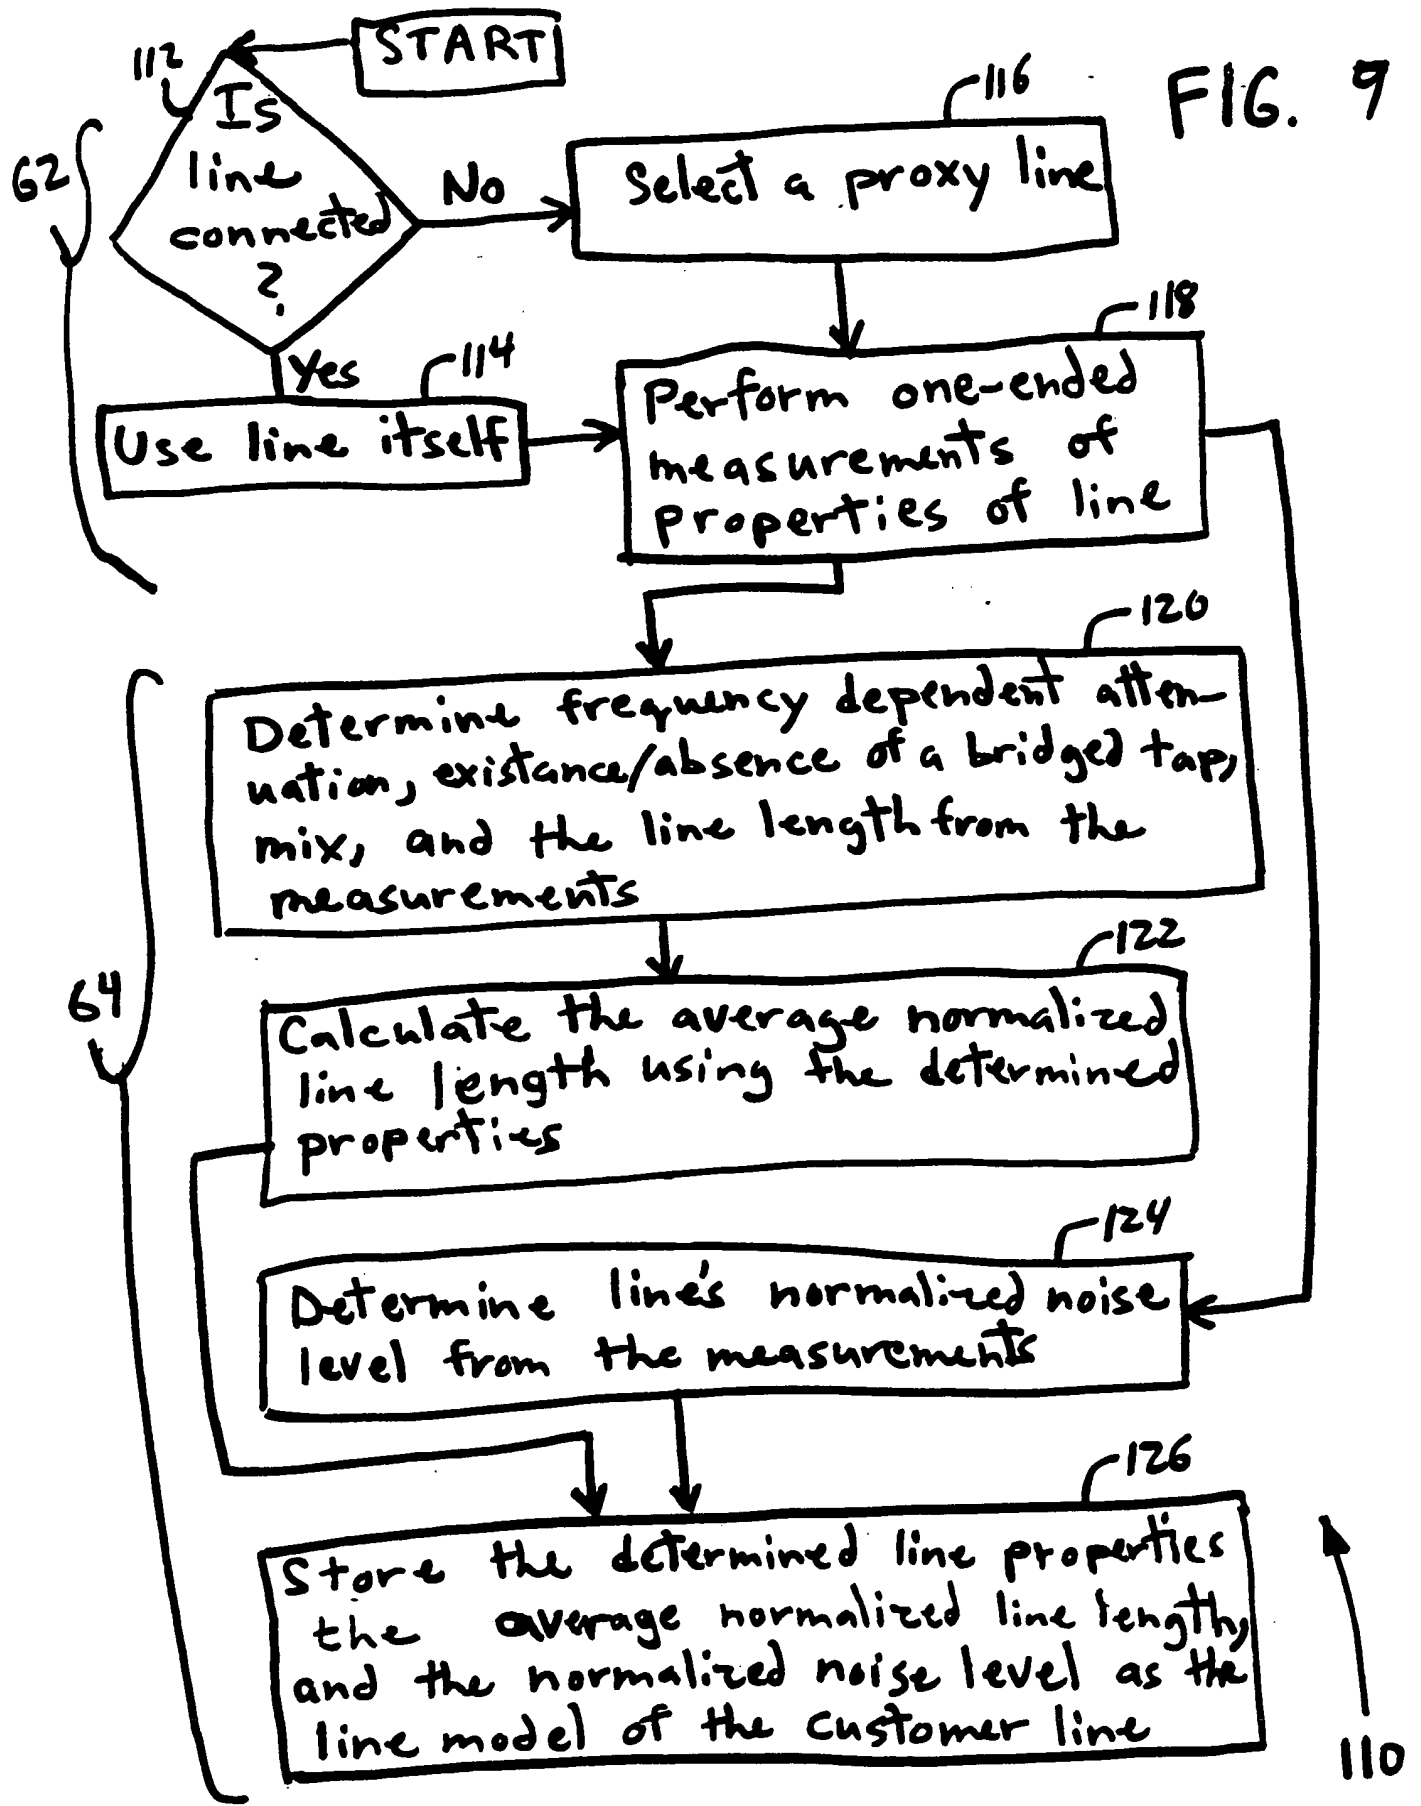 START
FIG. 9
112
Is
line
connected
?
62
No
116
Select a proxy line
Yes
114
Use line itself
118
Perform one-ended
measurements of
properties of line
120
Determine frequency dependent atten-
uation, existance/absence of a bridged tap,
mix, and the line length from the
measurements
64
122
Calculate the average normalized
line length using the determined
properties
124
Determine line's normalized noise
level from the measurements
126
Store the determined line properties
the average normalized line length,
and the normalized noise level as the
line model of the customer line
110